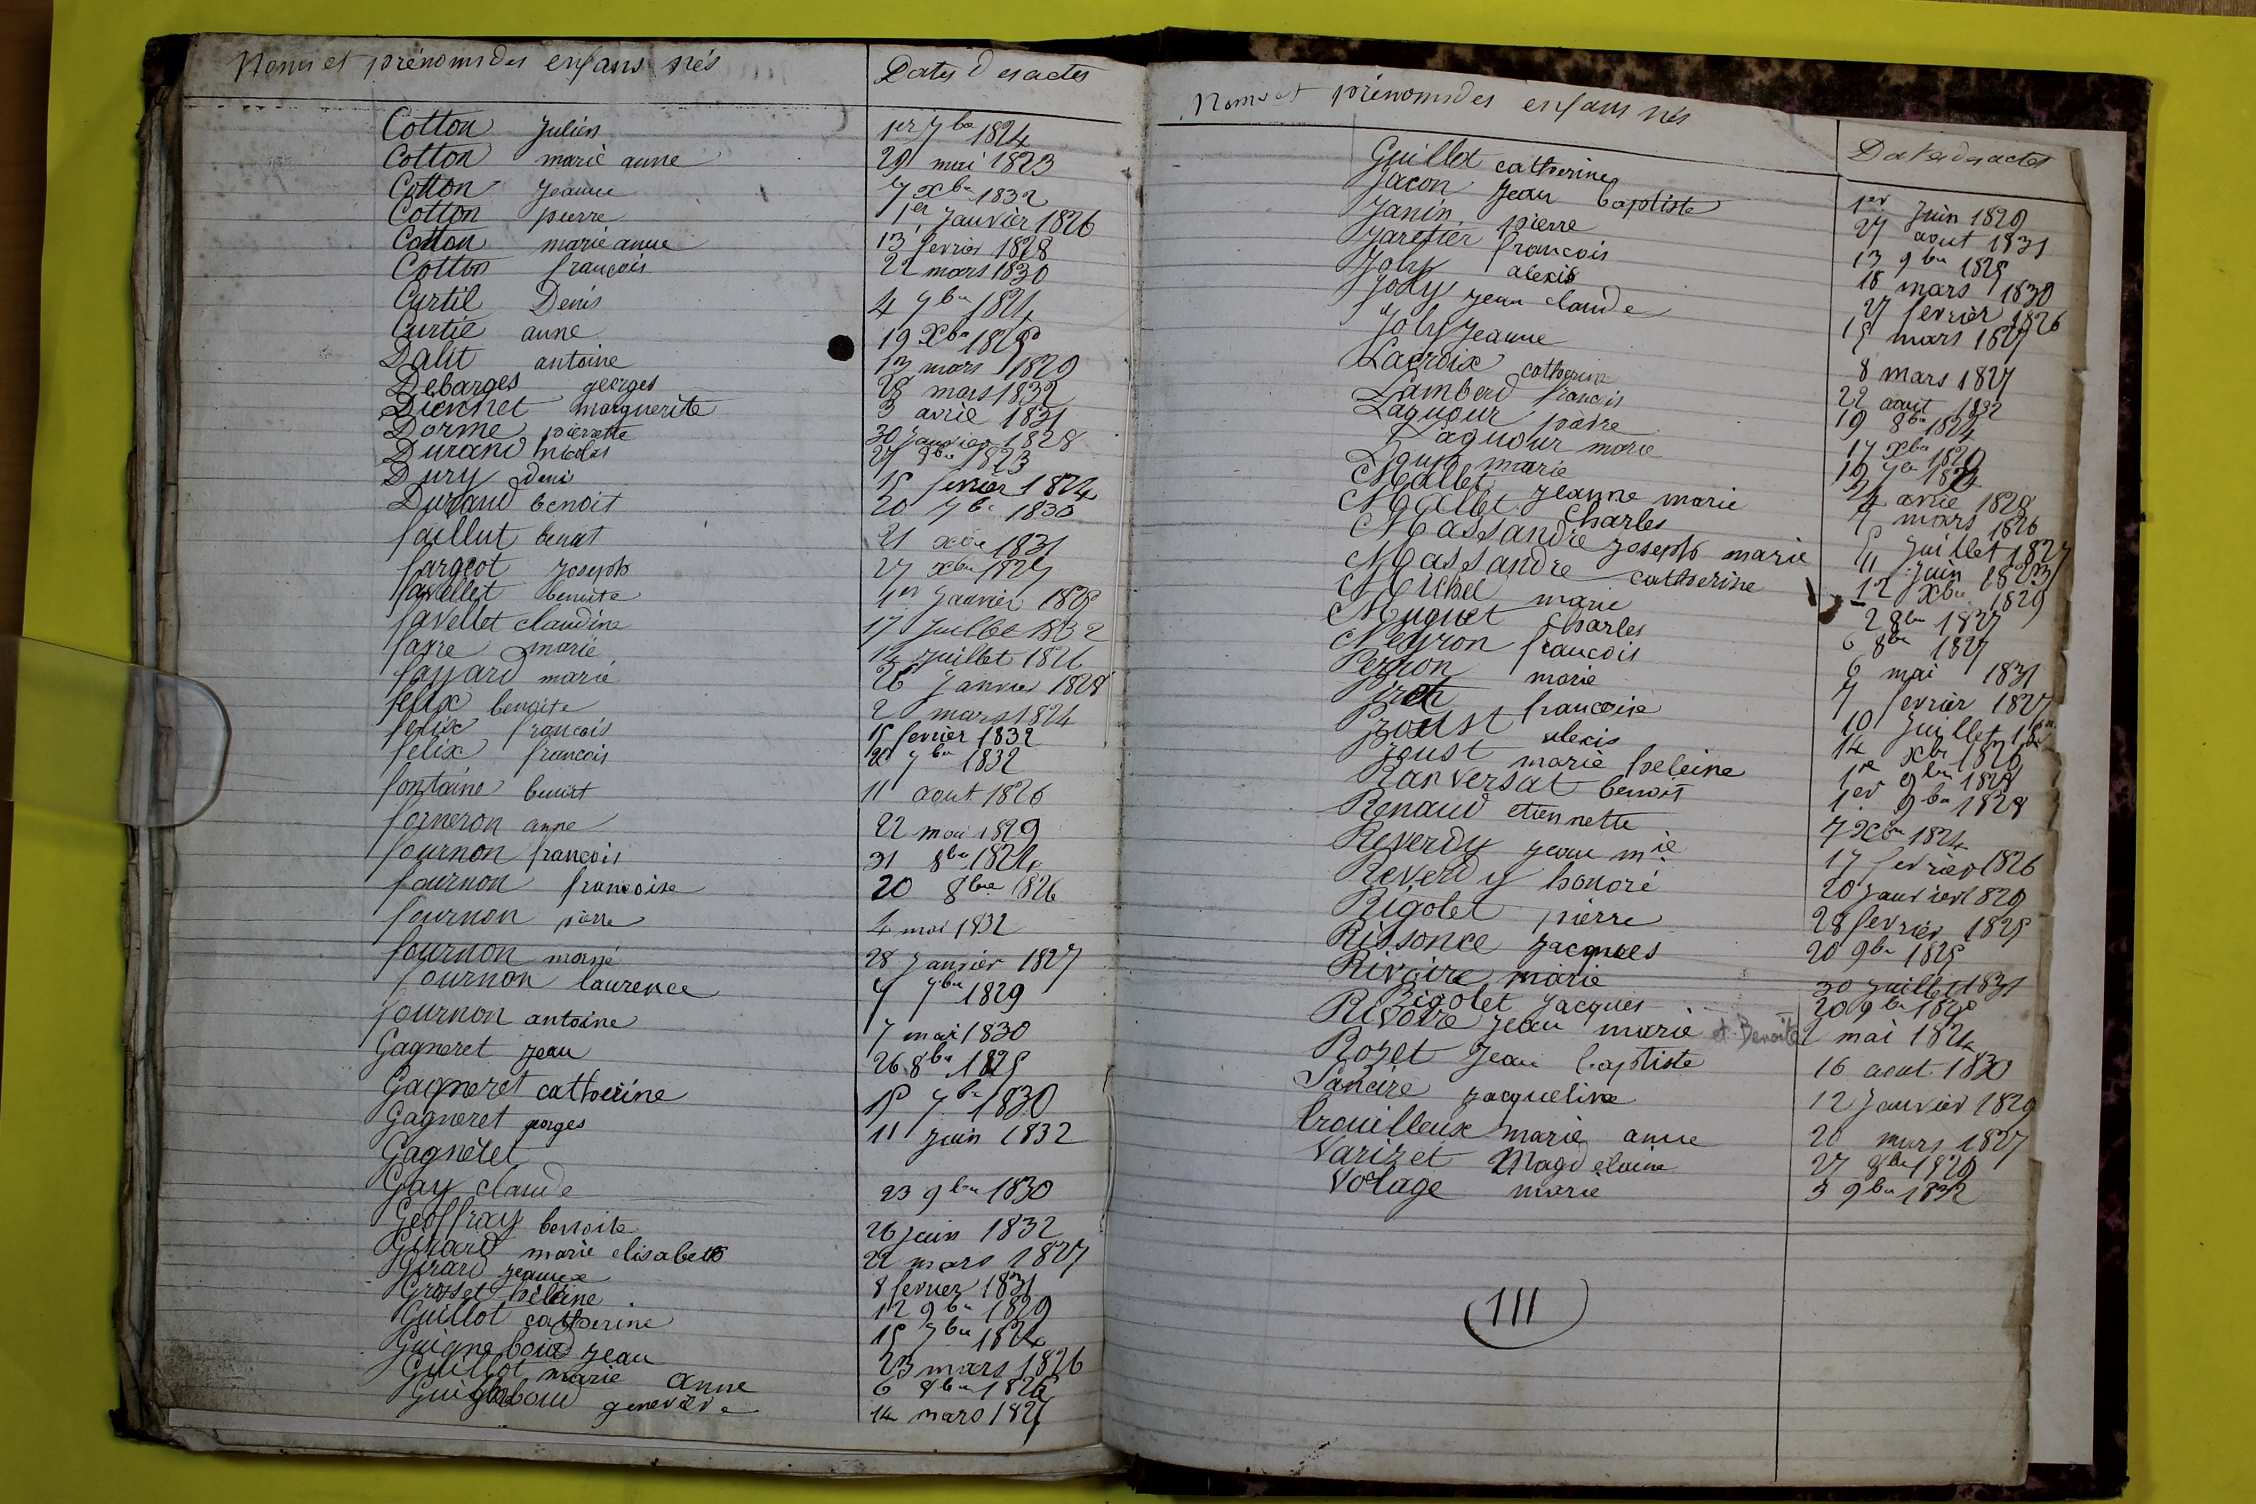 Noms et prénoms des enfans nés Dates des actes
Cotton Julien 1er 7bre 1824
Cotton marie anne 29 mai 1823
Cotton Jeanne 7 xbre 1832
Cotton pierre 1er Janvier 1826
Cotton marie anne 13 fevrier 1828
Cotton francois 22 mars 1830
Curtil Denis 4 7bre 1824
Curtil anne 19 Xbre
Dalit antoine 13 mars 1829
Debarges georges 28 mars 1832
Dionnet marguerite 3 avril 1831
Dorme pierrette 30 Janvier 1828
Durand nicolas 27 8bre 1823
Dury denis 15 fevrier 1824
Durand benoit 20 7bre 1830
faillut benoit 21 xbre 1831
fargeot Joseph 27 xbre
favellet benoite 1er Janvier
favellet claudine 17 Juillet 1832
favre marie 12 Juillet 1826
fayard marie 26 Janvier 1828
felix benoite 2 mars 1824
felix francois 15 fevrier 1832
felix francois 7bre 1832
fontaine benoit 11 aout 1826
forneron anne 22 mai 1829
fournon francois 31 8bre 1824
fournon francoise 20 8bre 1826
fournon pierre 4 mai 1832
fournon marie 28 Janvier 1827
fournon laurence 7 7bre 1829
fournon antoine 7 mai 1830
Gagneret Jean 26 8bre 1825
Gagneret catherine 15 7bre 1830
Gagneret georges 11 Juin 1832
Gagneret
Gay claude 23 9bre 1830
Geoffray benoite 26 juin 1832
Girard marie elisabeth 22 mars 1827
Girard Jeanne 8 fevrier 1831
Grosset hélène 12 9bre 1829
Guillot catherine 15 7bre 1824
Guigneboud Jean 23 mars 1826
Guillot marie anne 6 8bre 1826
genevieve 14 mars 1827
Noms et prénoms des enfans nés Dates des actes
Guillot catherine 1er Juin 1829
Jacon Jean baptiste 27 aout 1831
Janin pierre 13 9bre 1825
Jaretier francois 18 mars 1830
Joly alexis 27 fevrier 1826
Joly Jean claude 15 mars 1827
Joly Jeanne 8 mars 1827
Lacroix catherine 22 aout 1832
Lamberd francois 19 8bre 1824
Laguour pierre 17 xbre
Laguour marie
Loup marie 24 avril 1828
Mallet Jeanne marie 7 mars 1826
Mallet Charles Juillet 1827
Massandre Joseph marie 11 Juin 1823
Massandre catherine 12 Xbre 1829
Michel marie 2 8bre 1827
Muguet Charles 6 8bre 1827
Neyron francois 6 mai 1831
Pernon marie 7 fevrier 1827
francoise 10 Juillet
alexis 14 xbre 1826
marie heleine 1er 9bre 1828
Ranversat benoit 1er 9bre 1828
Renaud etiennette 7 Xbre 1824
Reverdy Jean mie 17 fevrier 1826
Reverdy honoré 20 Janvier 1829
Rigolet pierre 28 fevrier 1825
Rissonce Jacques 20 9bre 1825
Rivoire marie 30 Juillet 1831
Rigolet Jacques 20 9bre
Rivoire Jean marie et Benoite 2 mai 1824
Rozet Jean baptiste 16 aout 1830
Sandre Jacqueline 12 Janvier 1829
trouilleux marie anne 20 mars 1827
Varizet Magdelaine 27 8bre 1829
Volage marie 3 9bre 1832
111